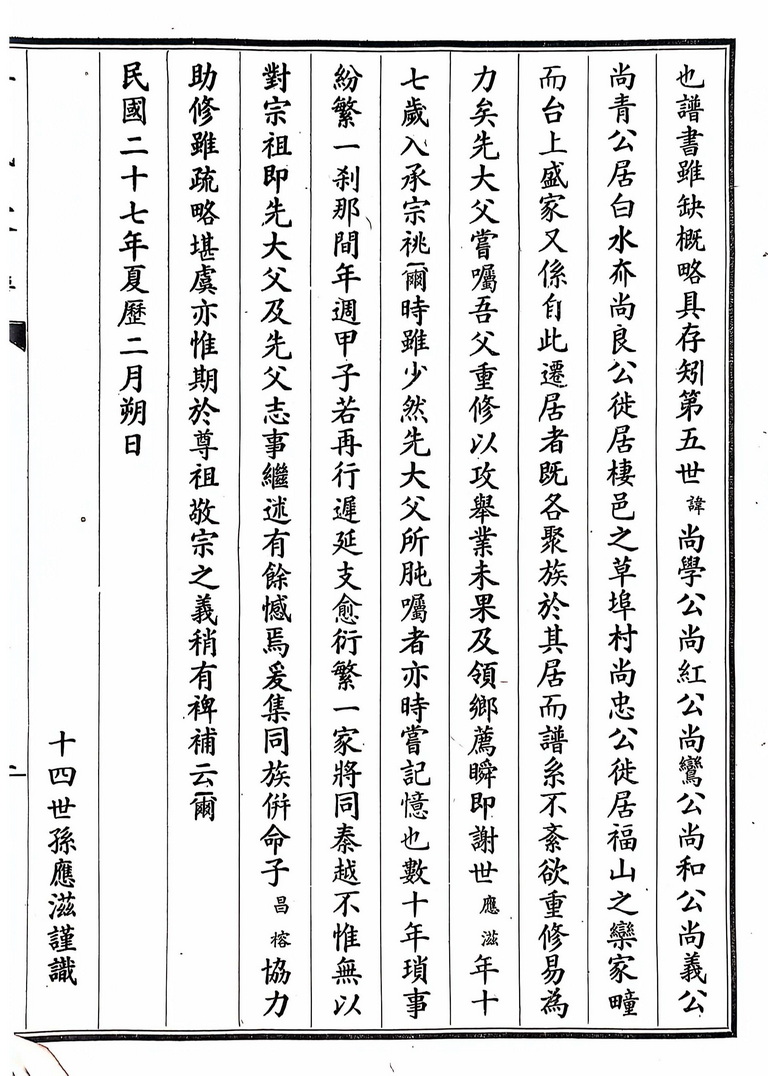 也譜書雖缺概略具存矧第五世諱尚學公尚紅公尚鸞公尚和公尚義公
尚青公居白水夼尚良公徙居棲邑之草埠村尚忠公徙居福山之欒家疃
而台上盛家又係自此遷居者既各聚族於其居而譜系不紊欲重修易為
力矣先大父嘗囑吾父重修以攻舉業未果及領鄉薦瞬即謝世應滋年十
七歲入承宗祧爾時雖少然先大父所肫囑者亦時嘗記憶也數十年瑣事
紛繁一刹那間年週甲子若再行遲延支愈衍繁一家將同秦越不惟無以
對宗祖即先大父及先父志事繼述有餘憾焉爰集同族併命子昌榕協力
助修雖疏略堪虞亦惟期於尊祖敬宗之義稍有裨補云爾
民國二十七年夏歷二月朔日
十四世孫應滋謹識